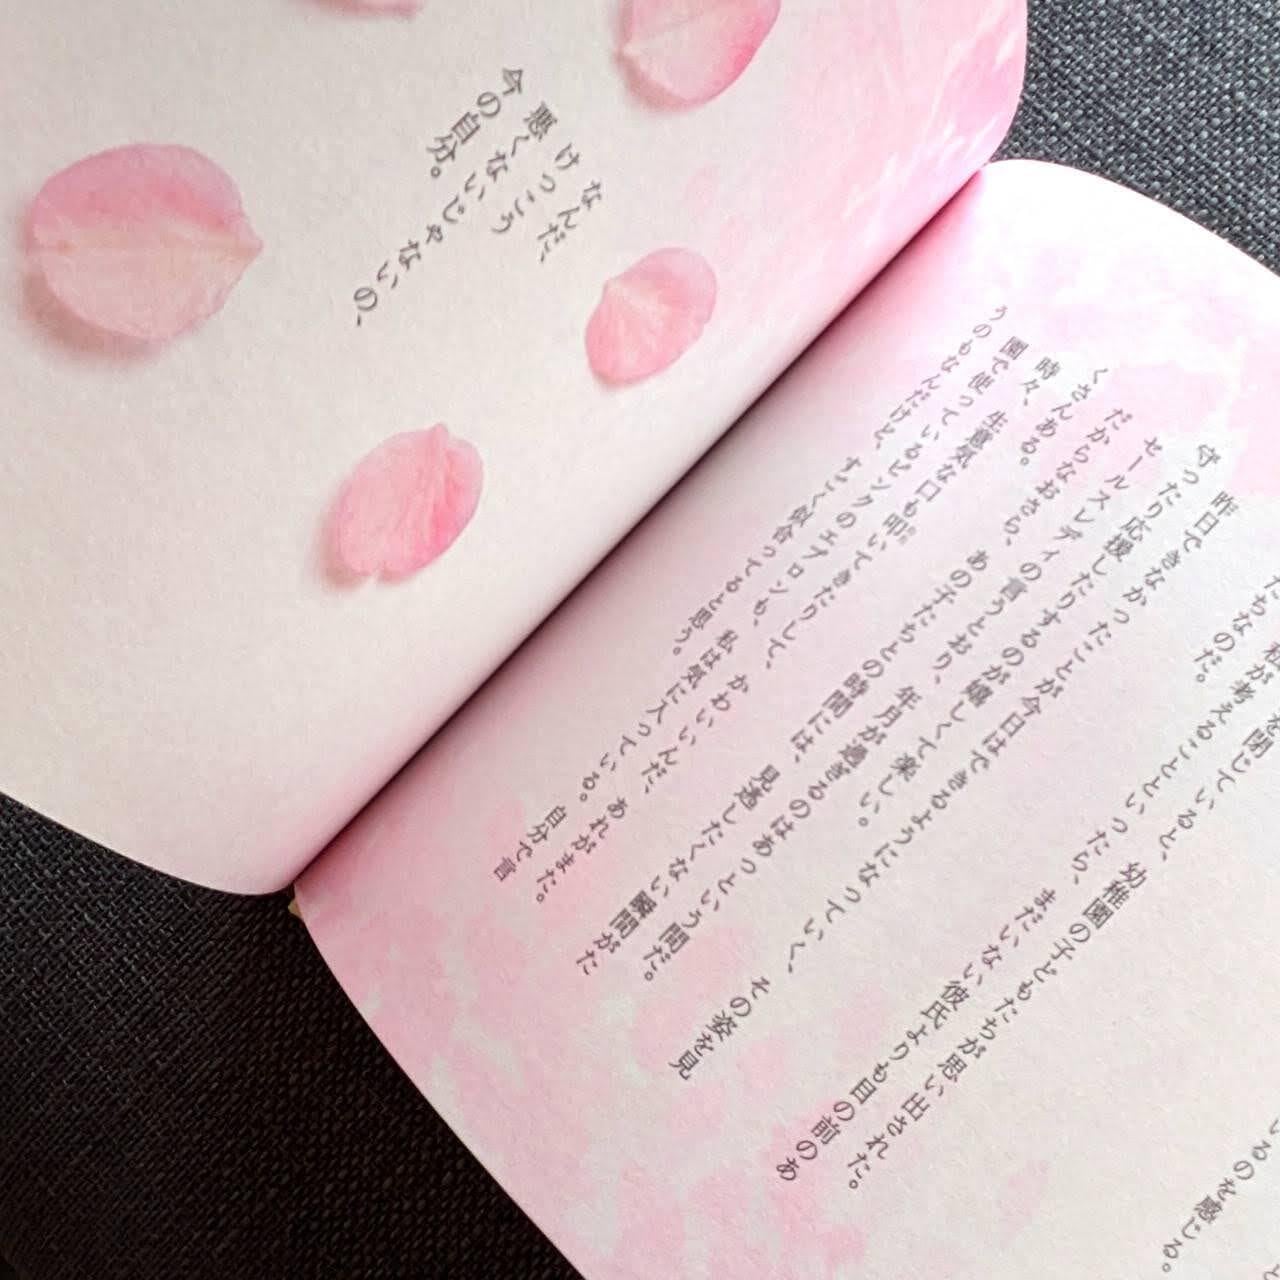 を閉じていると、幼稚園の子どもたちが思い出された。
私が考えることといったら、まだいない彼氏よりも目の前のあ
たちなのだ。
昨日できなかったことが今日はできるようになっていく、その姿を見
守ったり応援したりするのが嬉しくて楽しい。
セールスレディの言うとおり、年月が過ぎるのはあっという間だ。
だからなおさら、あの子たちとの時間には、見逃したくない瞬間がた
くさんある。
時々、生意気な口も叩いてきたりして、かわいいんだ、あれがまた。
園で使っているピンクのエプロンも、私は気に入っている。自分で言
うのもなんだけど、すごく似合ってると思う。
なんだ、
けっこう
悪くないじゃないの、
今の自分。